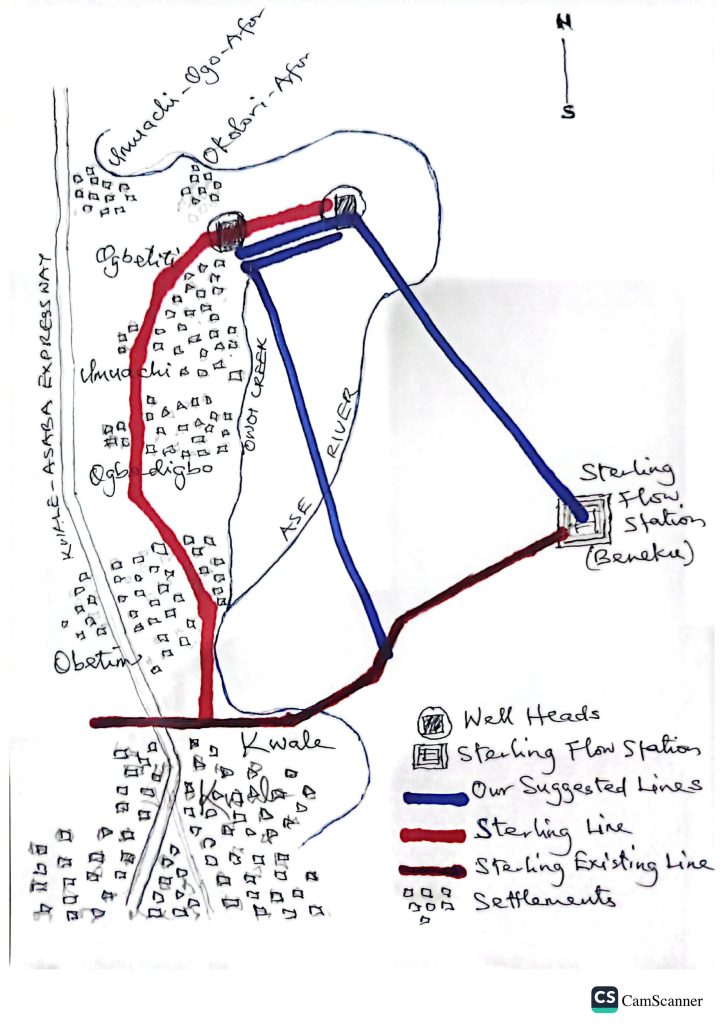 N
S
Umuachi-Ogo-Afor
Okolori-Afor
Ogbetiti
KWALE-ASABA EXPRESSWAY
Umuachi
OWOI CREEK
Ogbedigbo
ASE RIVER
Sterling
Flow
Station
(Beneku)
Obetim
Kwale
Kwale
Well Heads
Sterling Flow Station
Our Suggested Lines
Sterling Line
Sterling Existing Line
Settlements
CS CamScanner